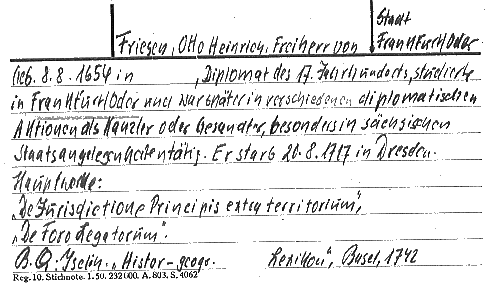 Stadt
Friesen, Otto Heinrich, Freiherr von
Frankfurt/Oder
Geb. 8.8.1654 in , Diplomat des 17. Jahrhunderts, studierte
in Frankfurt/Oder und war später in verschiedenen diplomatischen
Aktionen als Kanzler oder Gesandter, besonders in sächsischen
Staatsangelegenheiten tätig. Er starb 20.8.1717 in Dresden.
Hauptwerke:
„De Jurisdictione Principis extra territorium",
„De Foro Legatorum".
B.Q: Iselin. „Histor-geogr. Lexikon", Basel, 1742
Reg. 10. Stichnote. 1. 50. 232 000. A. 803. S. 4062